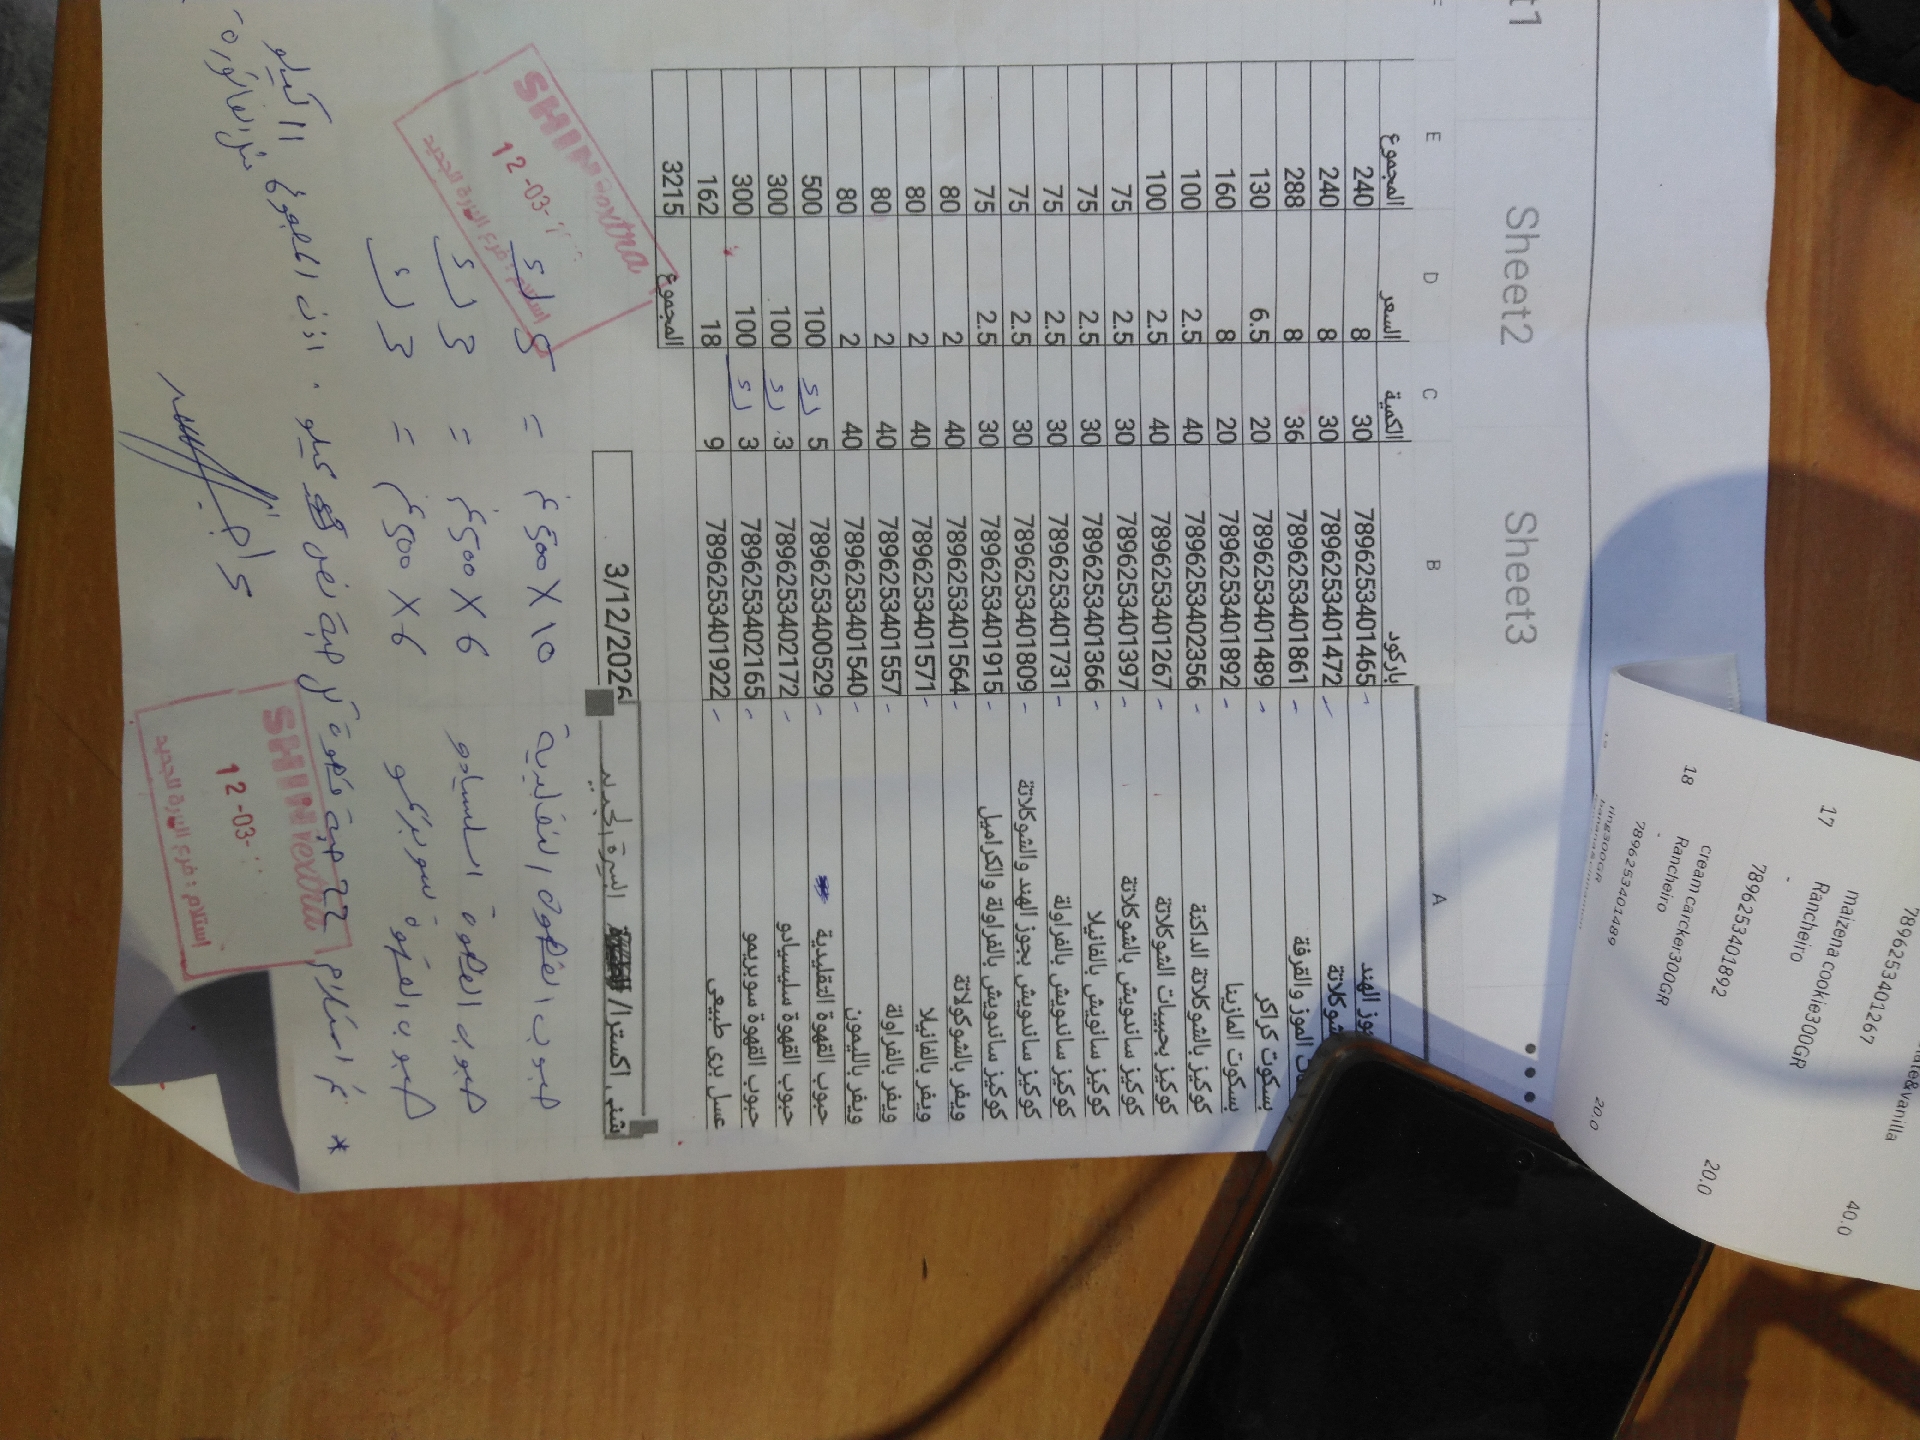 Sheet2 Sheet3
A B C D E
باركود الكمية السعر المجموع
جوز الهند 7896253401465 30 8 240
شوكلاتة 7896253401472 30 8 240
الموز والقرفة 7896253401861 36 8 288
بسكوت كراكر 7896253401489 20 6.5 130
بسكوت المازينا 7896253401892 20 8 160
كوكيز بالشوكلاتة الداكنة 7896253402356 40 2.5 100
كوكيز بحبيبات الشوكلاتة 7896253401267 40 2.5 100
كوكيز ساندويش بالشوكلاتة 7896253401397 30 2.5 75
كوكيز سانويش بالفانيلا 7896253401366 30 2.5 75
كوكيز ساندويش بالفراولة 7896253401731 30 2.5 75
كوكيز ساندويش بجوز الهند والشوكلاتة 7896253401809 30 2.5 75
كوكيز ساندويش بالفراولة والكراميل 7896253401915 30 2.5 75
ويفر بالشوكولاتة 7896253401564 40 2 80
ويفر بالفانيلا 7896253401571 40 2 80
ويفر بالفراولة 7896253401557 40 2 80
ويفر بالليمون 7896253401540 40 2 80
حبوب القهوة التقليدية 7896253400529 5 100 500
حبوب القهوة سليسيادو 7896253402172 3 100 300
حبوب القهوة سوبريمو 7896253402165 3 100 300
عسل بري طبيعي 7896253401922 9 18 162
المجموع 3215
شني اكسترا/ السرة الجديد 3/12/2026
حبوب القهوة التقليدية 10 X 500غ = 5
حبوب القهوة السليسادو 6 X 500غ = 3
حبوب القهوة سوبريمو 6 X 500غ = 3
* تم استلام 22 حبة قهوة كل حبة نص كيلو . اذن المجموع 11 كيلو
SHINextra
12-03-
استلام : فرع السرة الجديد
SHINextra
12-03-
استلام : فرع السرة الجديد
7896253401267
17 maizena cookie300GR 40.0
Rancheiro -
7896253401892
18 cream carcker300GR 20.0
Rancheiro -
7896253401489
20.0